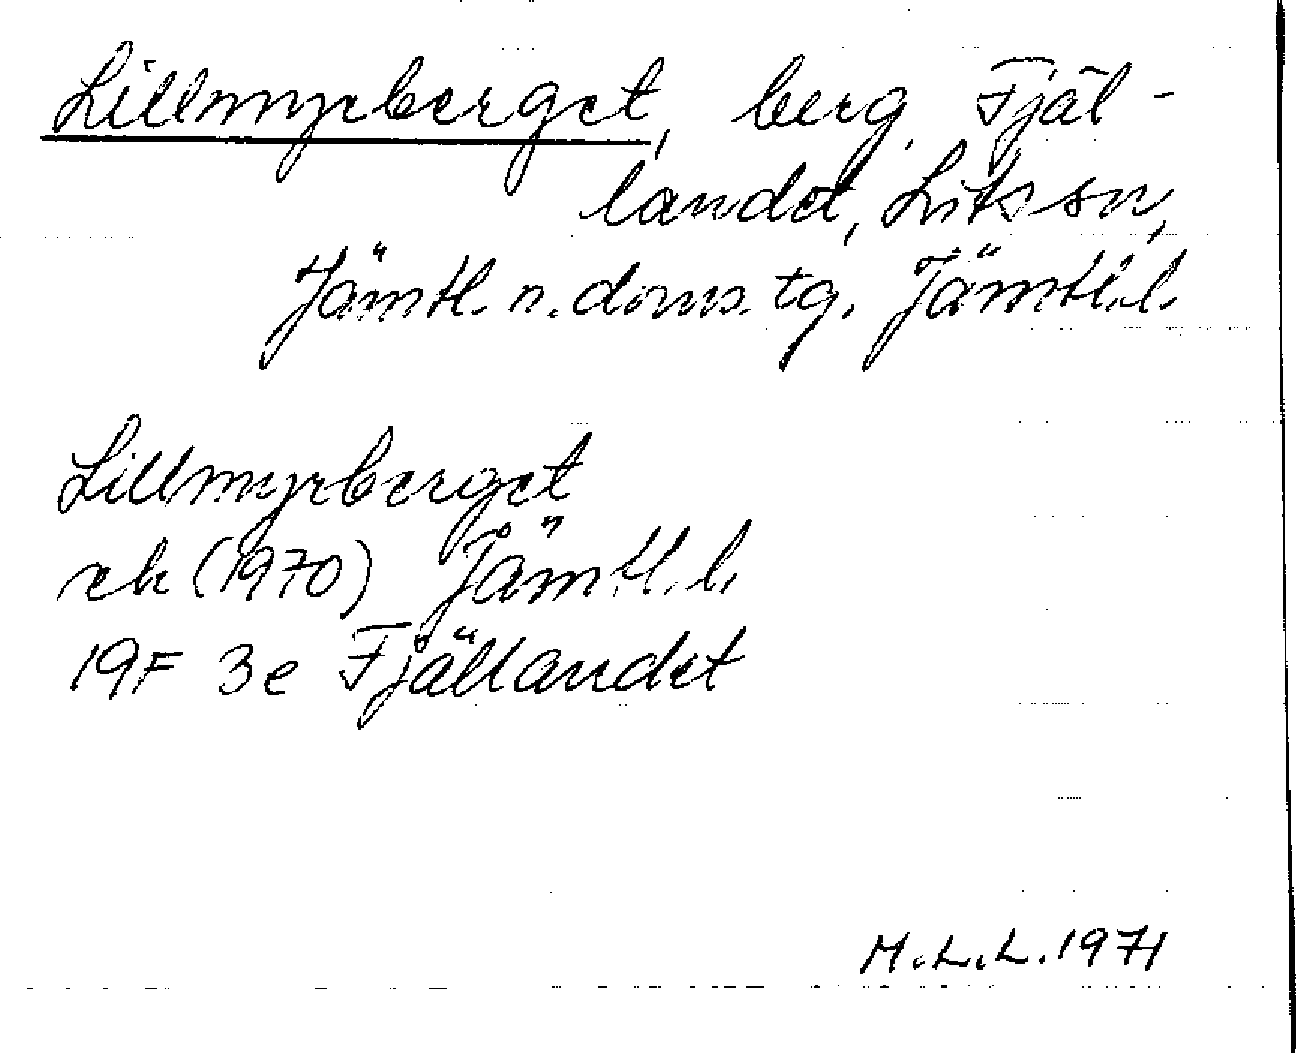 Lillmyrberget, berg, Fjäl-
landet, Lits sn,
Jämtl. n. doms. tg. Jämtl. l.
Lillmyrberget
rek (1970) Jämtl. l.
19F 3e Fjällandet
M.L.L. 1971